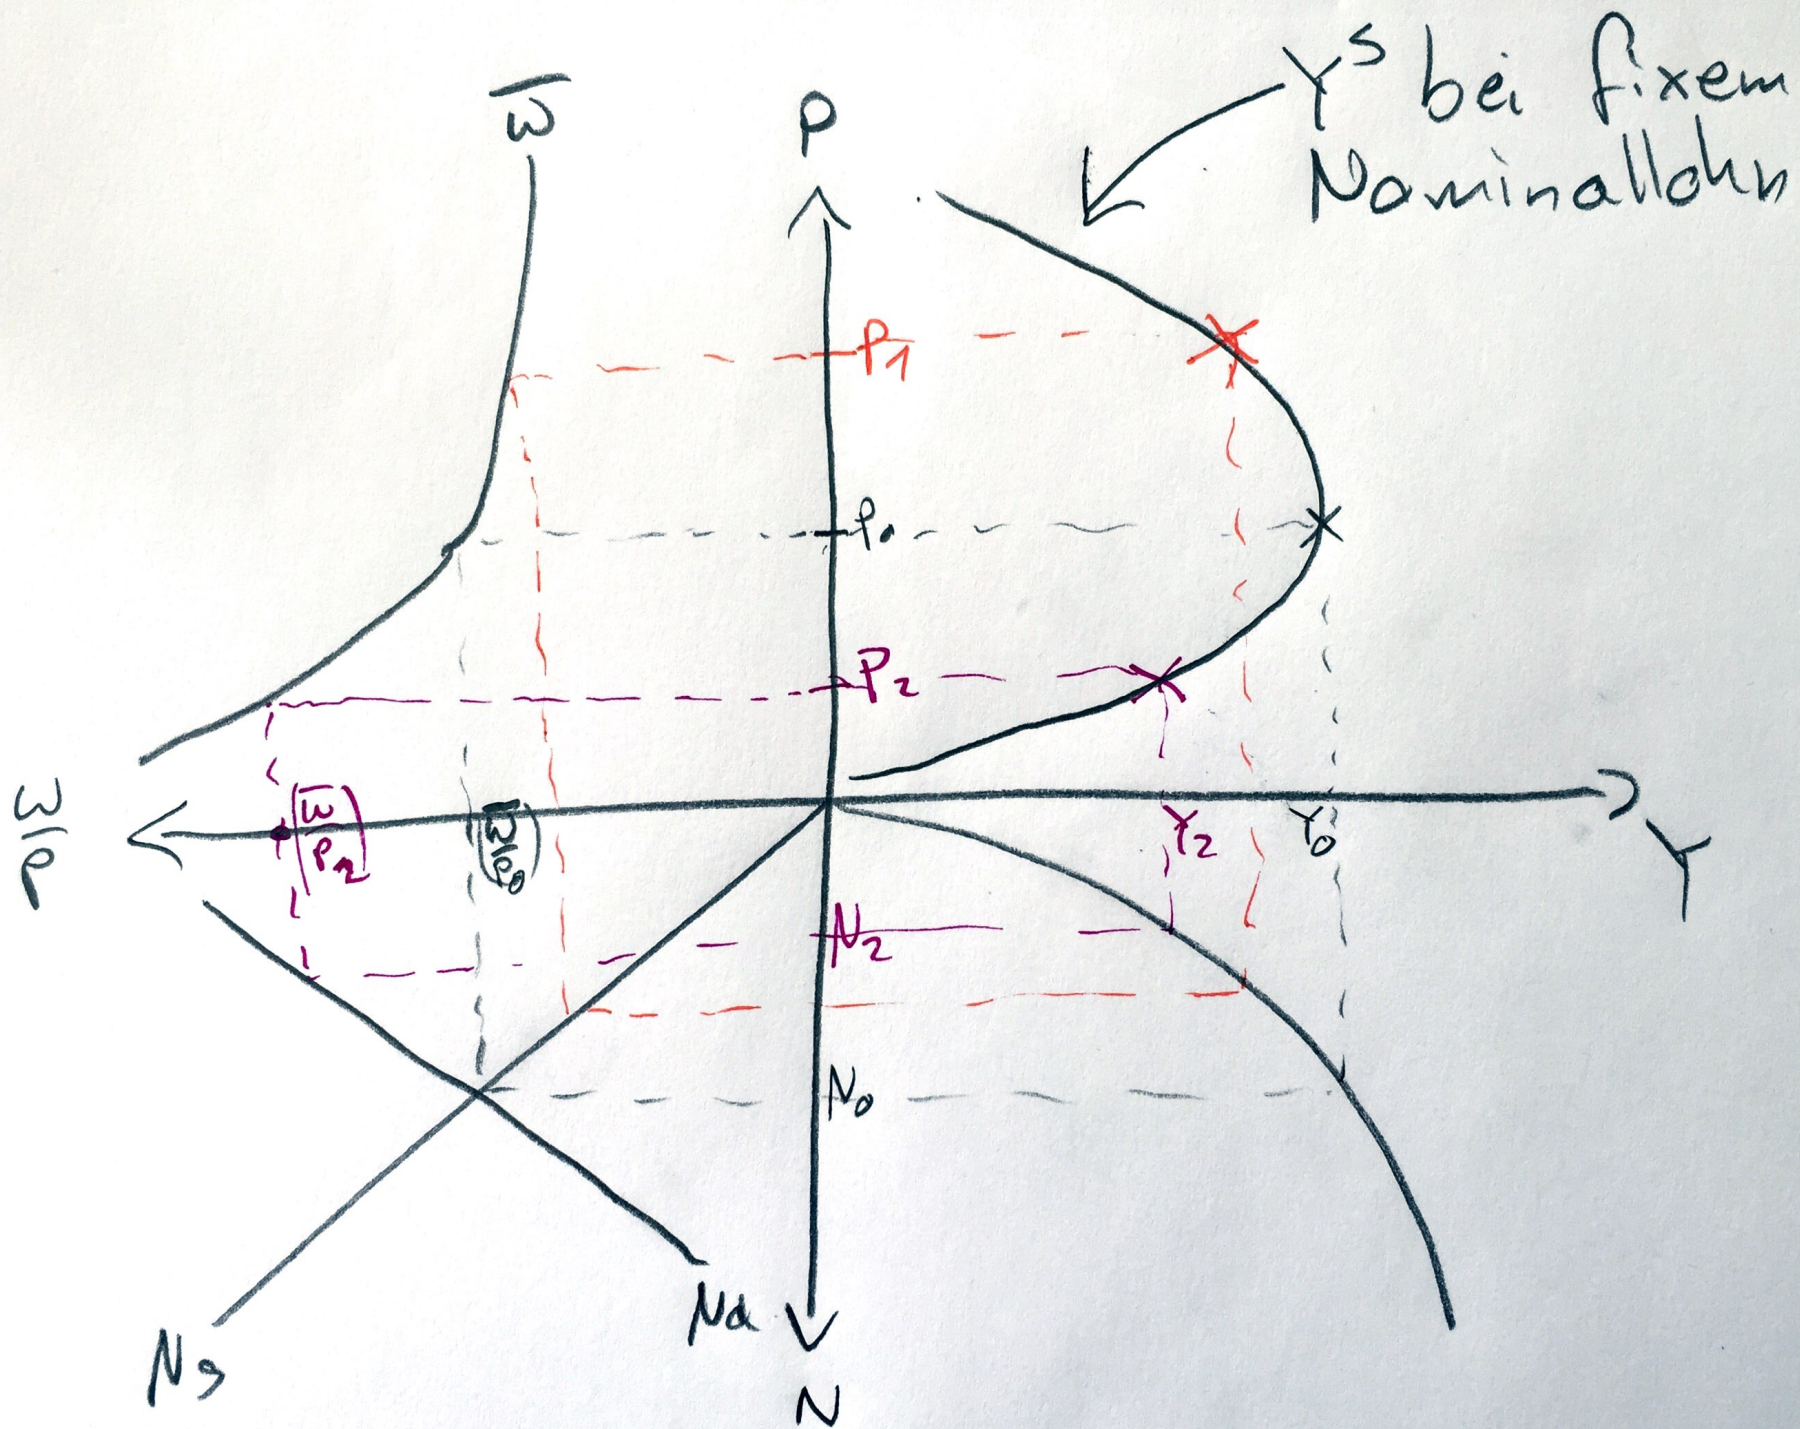 w̅
P
Yˢ bei fixem
Nominallohn
P₁
P₀
P₂
w/P
(w̅/P₂)
(w̅/P₀)
Y₂
Y₀
Y
N₂
N₀
Nd
Ns
N